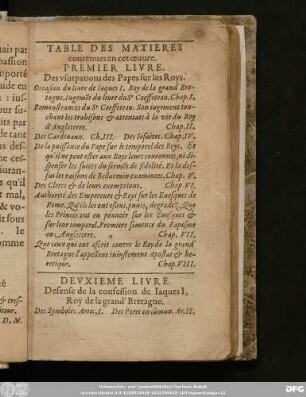 TABLE DES MATIERES
contenues en cet œuure.
PREMIER LIVRE.
Des vsurpations des Papes sur les Roys.
Occasion du liure de Iaques I. Roy de la grand Bre-
tagne. Iugemēt du liure du Sr Coeffeteau. Chap. I.
Remonstrances du Sr Coeffeteau. Son iugement tou-
chant les trahisons & attentats à la vie du Roy
d'Angleterre. Chap. II.
Des Cardinaux. Ch. III. Des Iesuites. Chap. IV.
De la puissance du Pape sur le temporel des Roys. Et
qu'il ne peut oster aux Roys leurs couronnes, ni di-
spenser les suiets du sermēt de fidelité. Et là des-
sus les raisons de Bellarmin examinees. Chap. V.
Des Clercs & de leurs exemptions. Chap. VI.
Authorité des Empereurs & Roys sur les Euesques de
Rome. Qu'ils les ont esleus, punis, degradez. Que
les Princes ont eu pouuoir sur les Euesques &
sur leur temporel. Premiere semence du Papisme
en Angleterre. Chap. VII.
Que ceux qui ont escrit contre le Roy de la grand'
Bretagne l'appellent iniustement Apostat & he-
retique. Chap. VIII.
DEVXIEME LIVRE.
Defense de la confession de Iaques I,
Roy de la grand' Bretagne.
Des Symboles. Artic. I. Des Peres en cōmun. Ar. II.